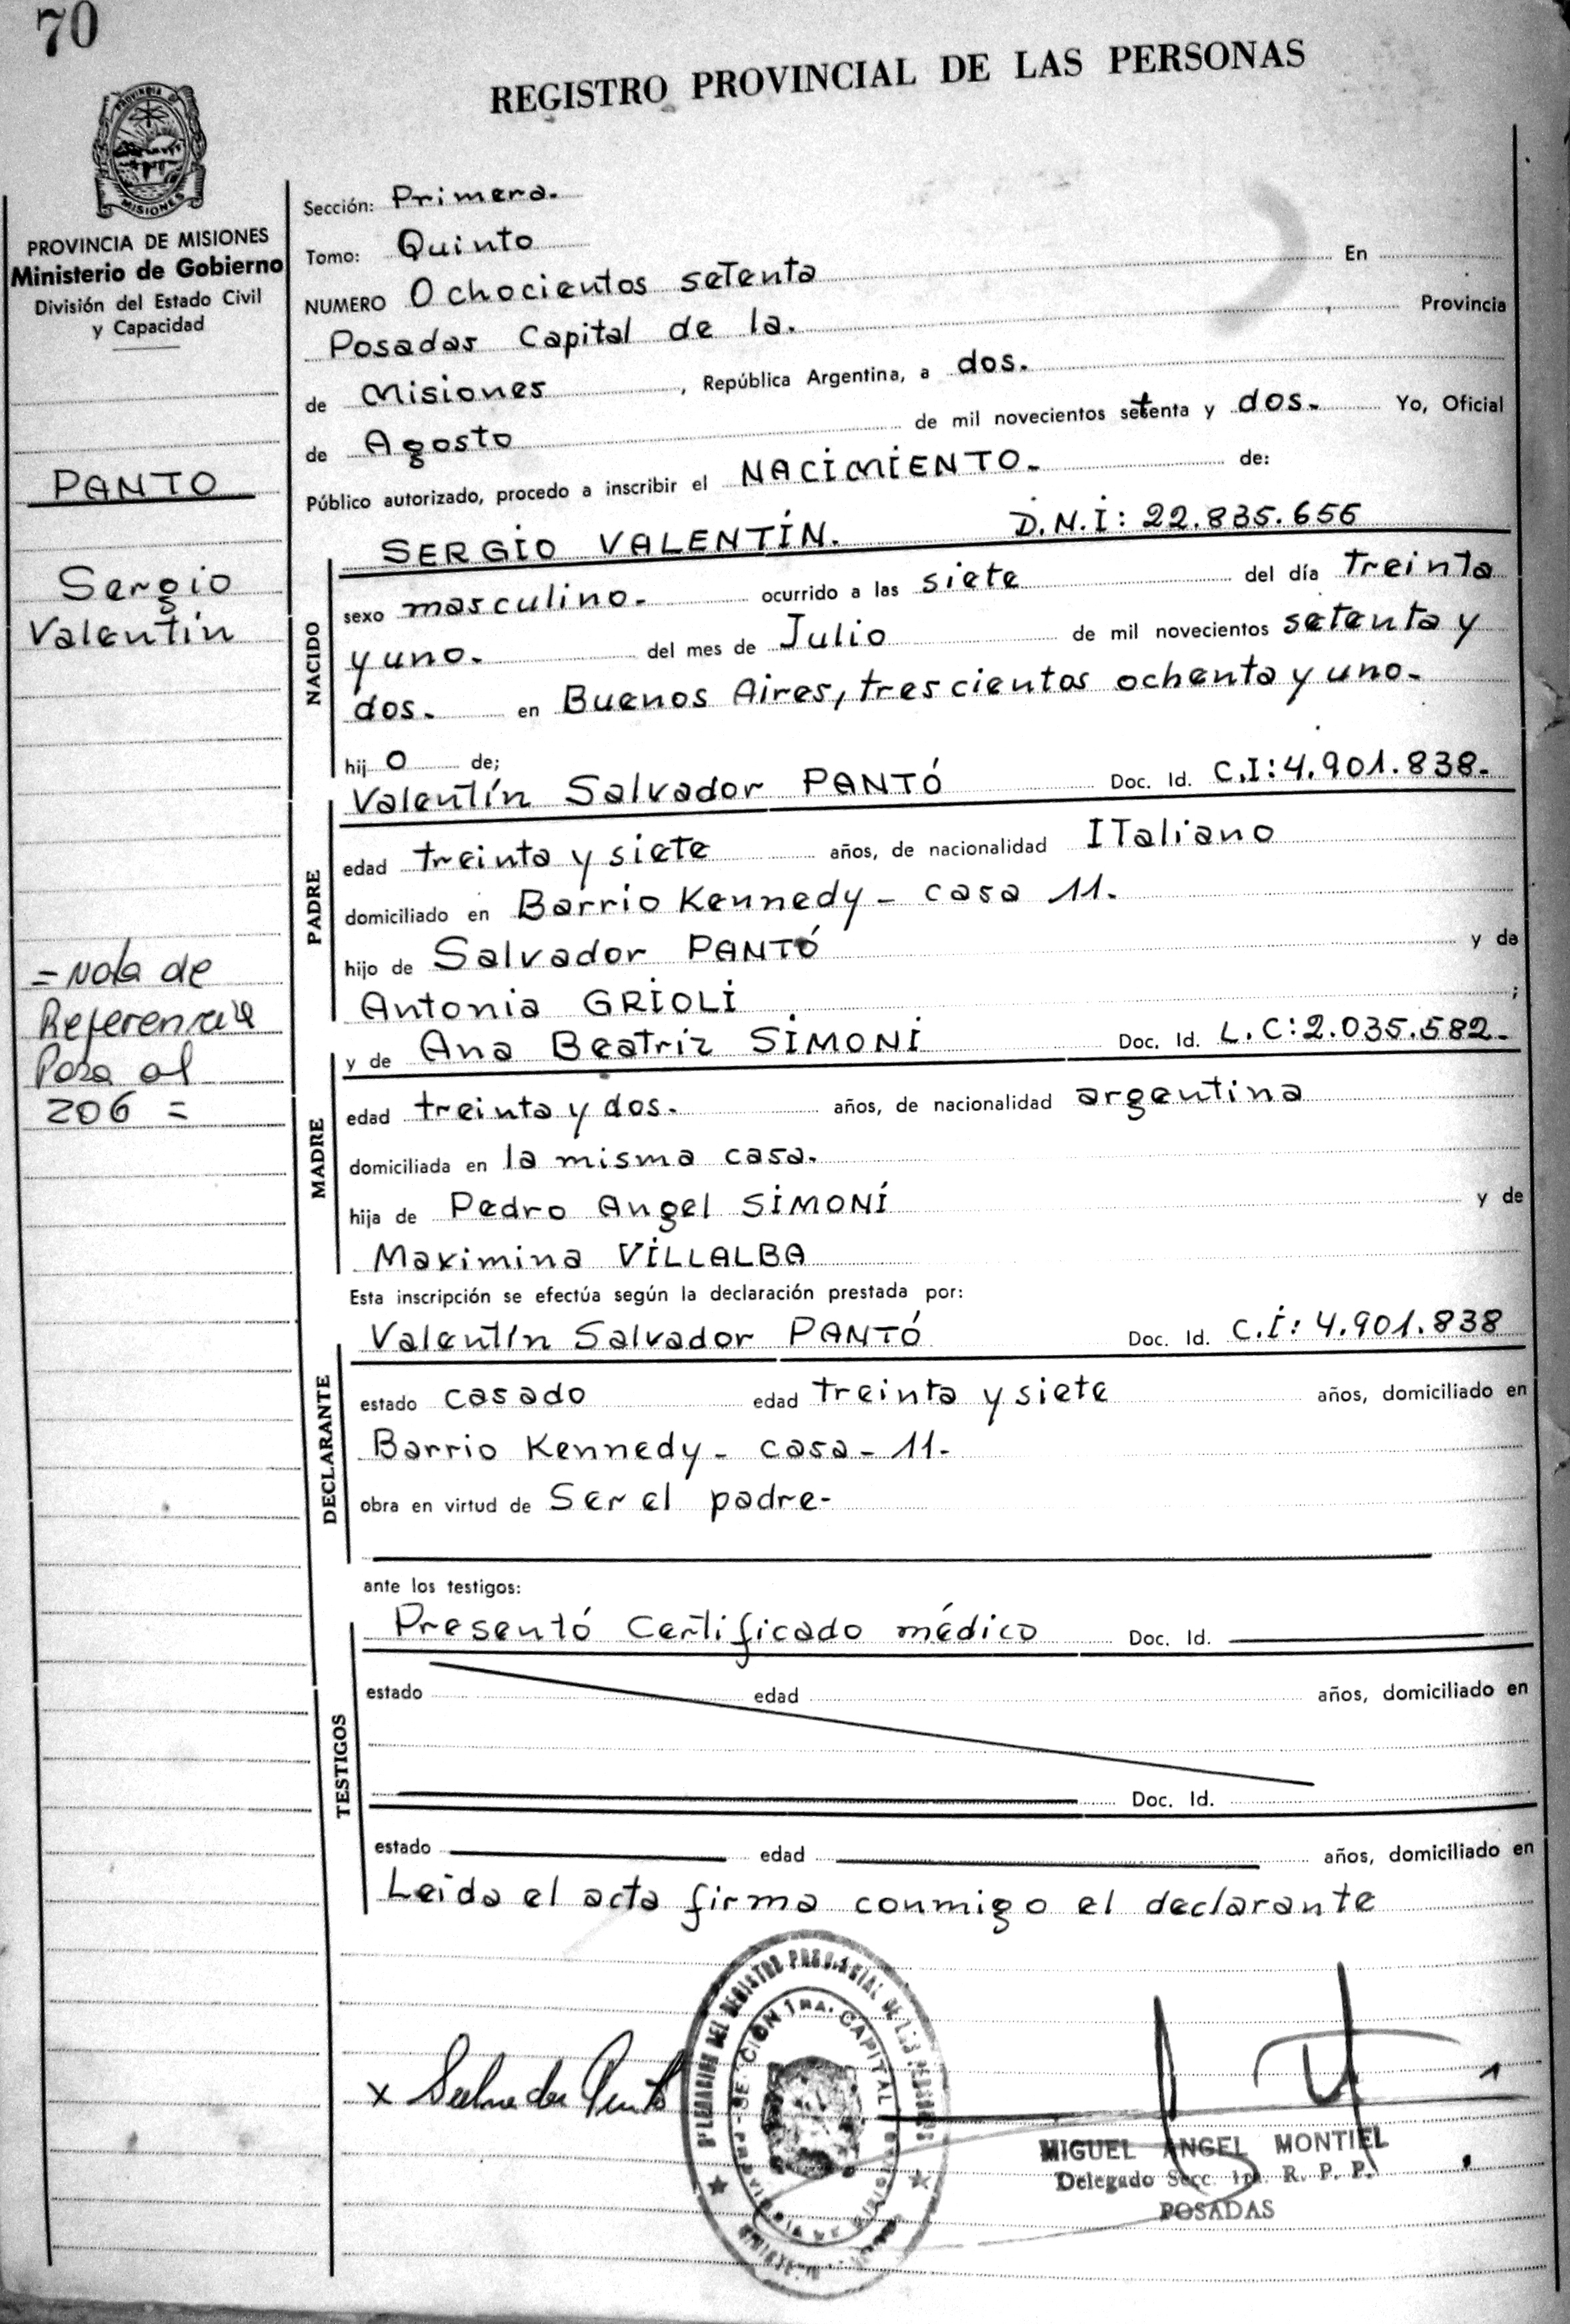 70
REGISTRO PROVINCIAL DE LAS PERSONAS
PROVINCIA DE
MISIONES
PROVINCIA DE MISIONES
Ministerio de Gobierno
División del Estado Civil
y Capacidad
PANTO
Sergio
Valentín
= Nota de
Referencia
Pasa al
206 =
Sección: Primera.
Tomo: Quinto
NUMERO Ochocientos setenta En
Posadas Capital de la. Provincia
de Misiones, República Argentina, a dos.
de Agosto de mil novecientos setenta y dos. Yo, Oficial
Público autorizado, procedo a inscribir el NACIMIENTO. de:
SERGIO VALENTÍN. D.N.I: 22.835.656
NACIDO
sexo masculino. ocurrido a las siete del día treinta
y uno. del mes de Julio de mil novecientos setenta y
dos. en Buenos Aires, trescientos ochenta y uno.
hijo de;
Valentín Salvador PANTÓ Doc. Id. C.I: 4.901.838.
PADRE
edad treinta y siete años, de nacionalidad Italiano
domiciliado en Barrio Kennedy - casa 11.
hijo de Salvador PANTÓ y de
Antonia GRIOLI ;
y de Ana Beatriz SIMONÍ Doc. Id. L.C: 2.035.582.
MADRE
edad treinta y dos. años, de nacionalidad argentina
domiciliada en la misma casa.
hija de Pedro Angel SIMONÍ y de
Maximina VILLALBA
Esta inscripción se efectúa según la declaración prestada por:
Valentín Salvador PANTÓ Doc. Id. C.I: 4.901.838
DECLARANTE
estado casado edad treinta y siete años, domiciliado en
Barrio Kennedy - casa - 11.
obra en virtud de Ser el padre-
ante los testigos:
Presentó Certificado médico Doc. Id.
TESTIGOS
estado edad años, domiciliado en
Doc. Id.
estado edad años, domiciliado en
Leida el acta firma conmigo el declarante
x Salvador Panto
DEL REGISTRO PROVINCIAL DE LAS PERSONAS
SECCION 1ra. CAPITAL
MIGUEL ANGEL MONTIEL
Delegado Secc. 1ra. R. P. P.
POSADAS